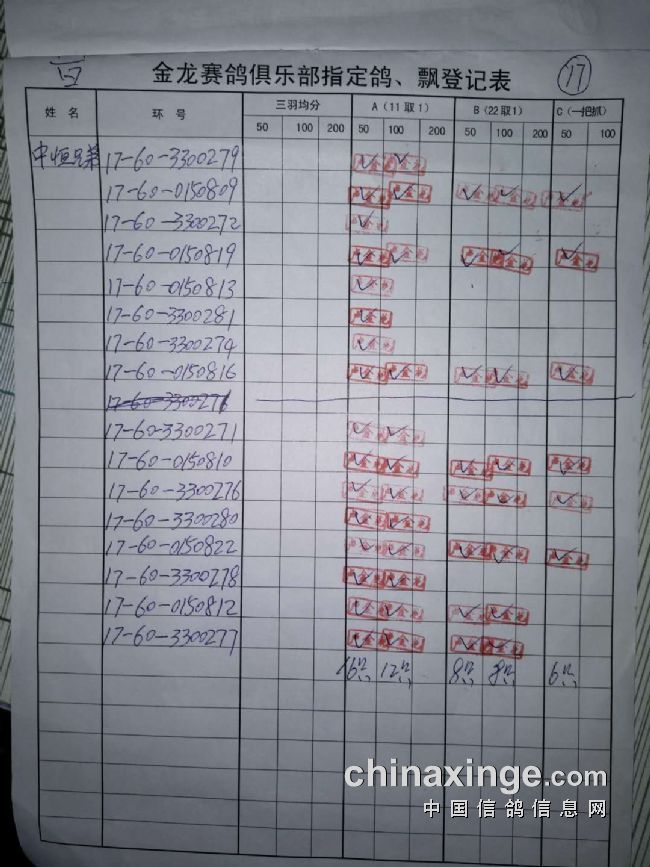 金龙赛鸽俱乐部指定鸽、飘登记表
17
姓 名 环 号 三羽均分 A（11取1） B（22取1） C（一把抓）
50 100 200 50 100 200 50 100 200 50 100
中恒兄弟 17-60-3300279
17-60-0150809
17-60-3300272
17-60-0150819
17-60-0150813
17-60-3300281
17-60-3300274
17-60-0150816
17-60-3300276
17-60-3300271
17-60-0150810
17-60-3300276
17-60-3300280
17-60-0150822
17-60-3300278
17-60-0150812
17-60-3300277
16 12 8 8 6
chinaxinge.com
中国信鸽信息网